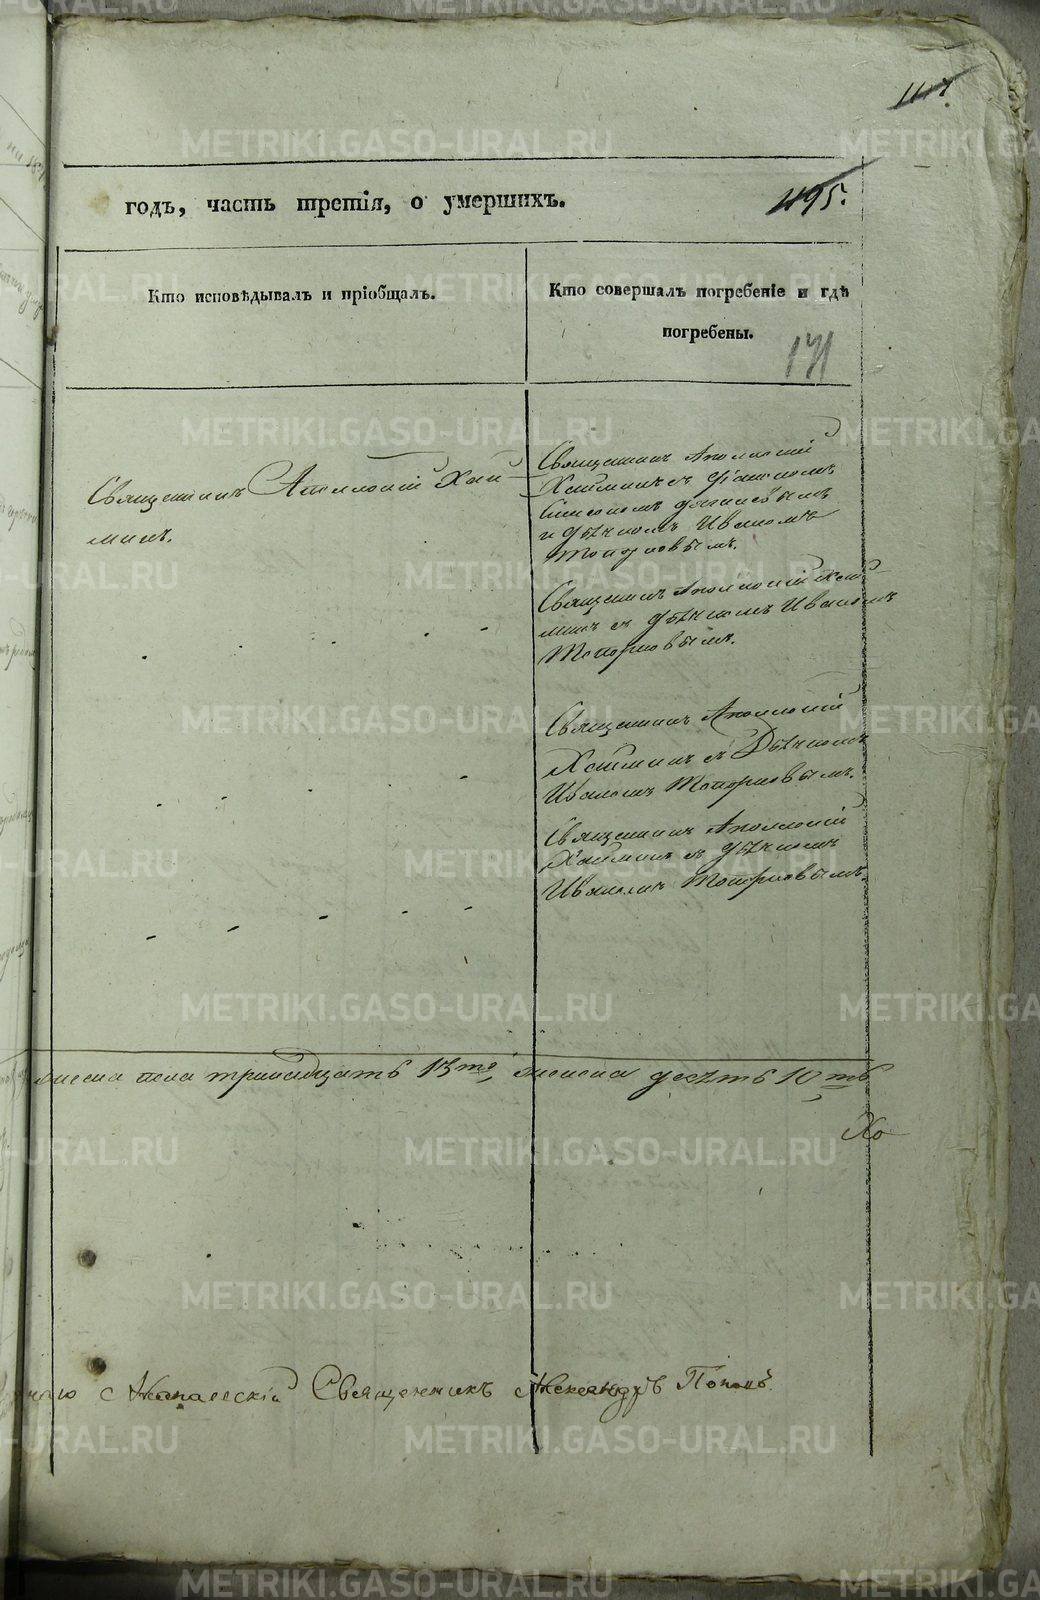 годъ, часть третія, о умершихъ.
495.
Кто исповѣдывалъ и пріобщалъ.
Кто совершалъ погребеніе и гдѣ
погребены.
171
Священникъ Аполлоній Хай-
минъ.
Священникъ Аполлоній
Хайминъ съ Діакономъ
и Дьячкомъ Иваномъ
Топорковымъ.
Священникъ Аполлоній Хай-
минъ съ Дьячкомъ Иваномъ
Топорковымъ.
Священникъ Аполлоній
Хайминъ съ Дьячкомъ
Иваномъ Топорковымъ.
Священникъ Аполлоній
Хайминъ съ Дьячкомъ
Иваномъ Топорковымъ.
пола тринадцать 13ть, женска десять 10ть
Хо
Священникъ Александръ Поповъ
METRIKI.GASO-URAL.RU